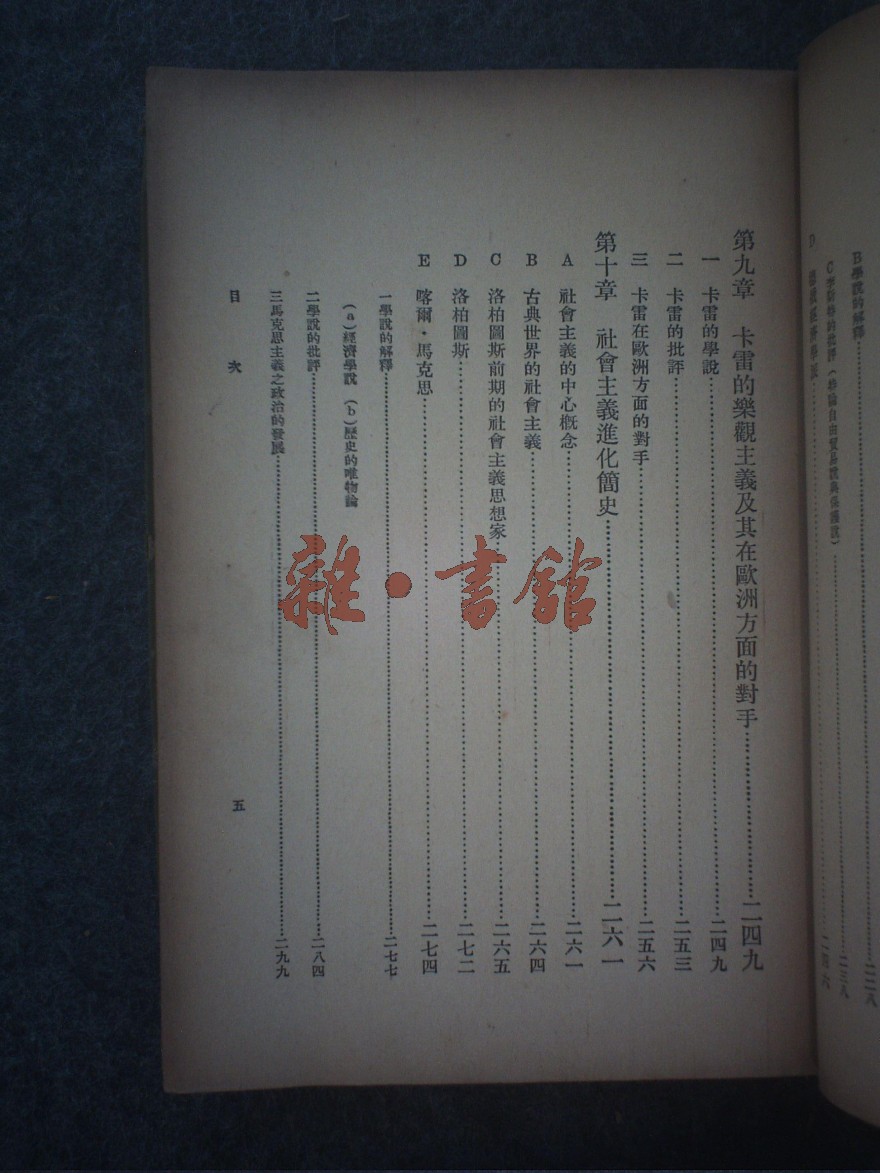 B學說的解釋⋯⋯二二八
C李斯特的批評(特論自由貿易說與保護說)⋯⋯二三八
D⋯⋯二四六
第九章 卡雷的樂觀主義及其在歐洲方面的對手⋯⋯二四九
一 卡雷的學說⋯⋯二四九
二 卡雷的批評⋯⋯二五三
三 卡雷在歐洲方面的對手⋯⋯二五六
第十章 社會主義進化簡史⋯⋯二六一
A 社會主義的中心概念⋯⋯二六一
B 古典世界的社會主義⋯⋯二六四
C 洛柏圖斯前期的社會主義思想家⋯⋯二六五
D 洛柏圖斯⋯⋯二七二
E 喀爾·馬克思⋯⋯二七四
一學說的解釋⋯⋯二七七
(a)經濟學說 (b)歷史的唯物論
二學說的批評⋯⋯二八四
三馬克思主義之政治的發展⋯⋯二九九
目次 五
雜·書館